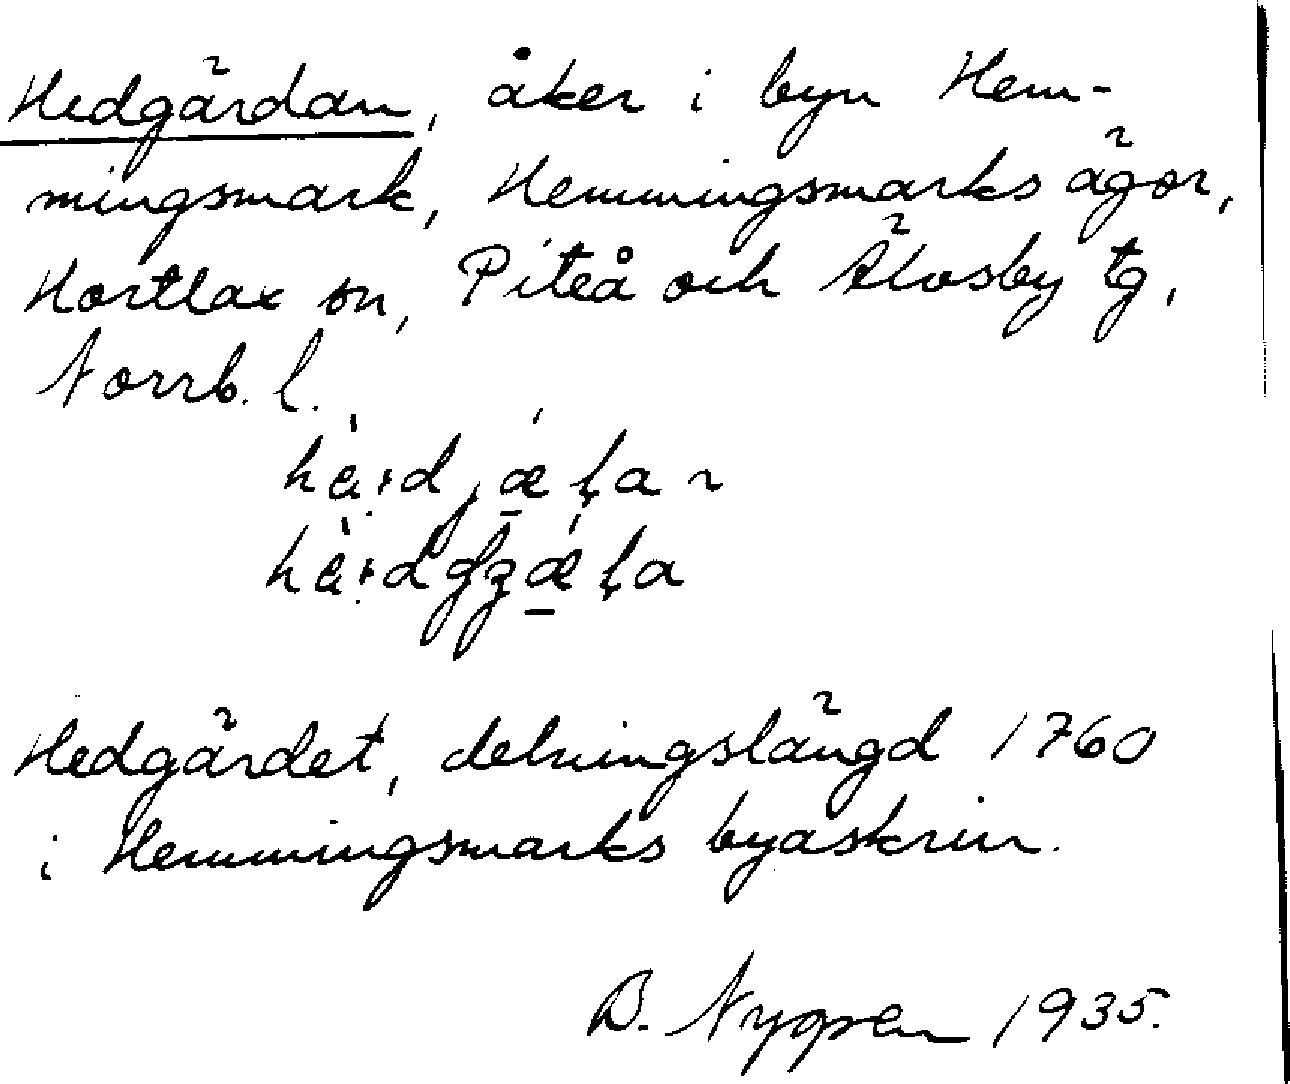 Hedgärdan, åker i byn Hem-
mingsmark, Hemmingsmarks ägor,
Hortlax sn, Piteå och Älvsby tg,
Norrb. l.
Hedgärdet, delningslängd 1760
i Hemmingsmarks byaskrin.
B. Nygren 1935.